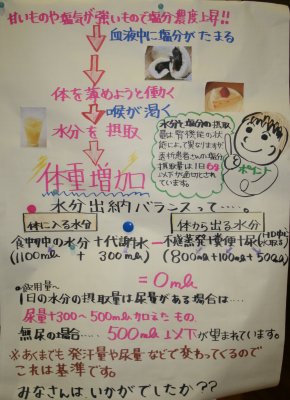 甘いものや塩気が強いもので塩分濃度上昇!!
血液中に塩分がたまる
体を薄めようと働く
喉が渇く
水分を摂取
体重増加
水分と塩分の摂取
量は腎機能の状
態によって異なりますが
透析患者さんの塩分
摂取量は1日6g
以下が適切とされ
ています。
ポイント
水分出納バランスって……。
体に入る水分
体から出る水分
食事中の水分+代謝水－不感蒸発+糞便+尿
(1100ml + 300ml) (800ml+100ml+500ml)
=0ml
飲用量へ
1日の水分の摂取量は尿量がある場合は…
尿量+300~500ml加えたもの
無尿の場合…500ml以下が望まれています。
※あくまでも発汗量や尿量などで変わってくるので
これは基準です。
みなさんはいかがでしたか??